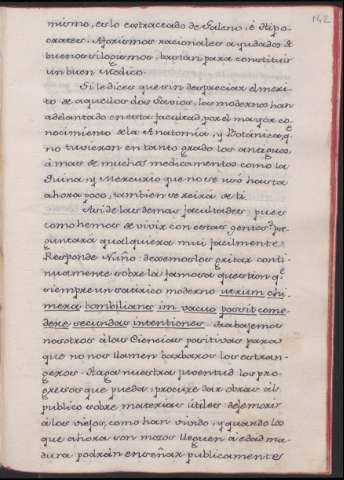 142
mismo, es lo extractado de Galeno, é Hipo-
crates. Aforismos racionales ayudados de
buenos silogismos, bastan para constituir
un buen Medico.
Si le dices que sin despreciar el meri-
to de aquellos dos Savios, los modernos han
adelantado en esta facultad, por el mayor co-
nocimiento de la Anatomia, y Botanica, q.e
no tuvieron en tanto grado los antiguos,
á mas de muchos medicamentos como la
Quina, y Mercurio que no se usó hasta
ahora poco, tambien se reirá de ti.
Asi de las demas facultades: pues
como hemos de vivir con estas gentes? pre-
guntará qualquiera: mui facilmente.
Responde Nuño: dexemoslos gritar conti-
nuamente sobre la famosa question q.e
siempre un satirico moderno utrum chi-
mera bombilians in vacuo possit come-
dere secundas intentiones. Trabajemos
nosotros á las Ciencias positivas para
que no nos llamen barbaros los estran-
geros. Haga nuestra juventud los pro-
gresos que pueda: procure dar obras al
publico sobre materias útiles: deje morir
á los viejos, como han vivido, y quando los
que ahora son mozos lleguen a edad ma-
dura podrán enseñar publicamente